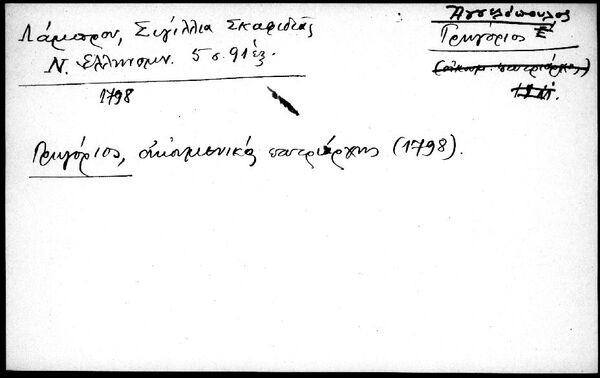 Λάμπρου, Σιγίλλια Σκαφιδιᾶς
Ν. Ἑλληνομν. 5 σ. 91 ἑξ.
1798
Ἀγγελόπουλος
Γρηγόριος Ε΄
(οἰκουμ. πατριάρχης)
Γρηγόριος, οἰκουμενικός πατριάρχης (1798).